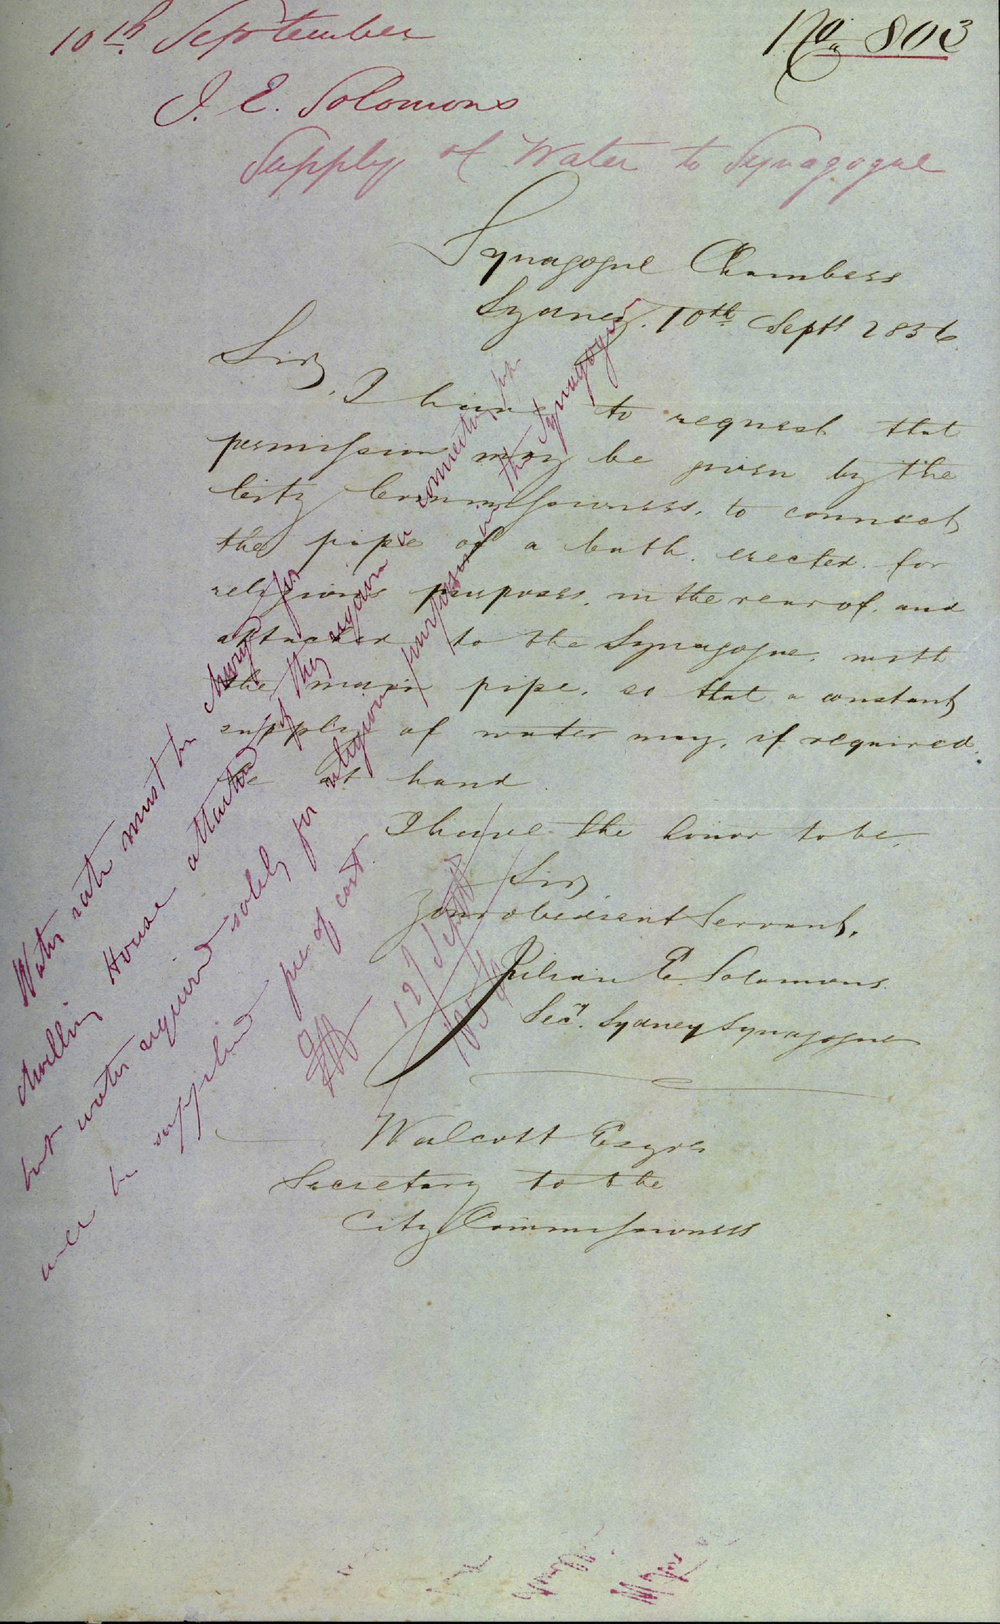 No. 803
10th September
J. E. Solomons
Supply of Water to Synagogue
Synagogue Chambers
Sydney. 10th Septr 1856
Sir,
I have to request that
permission may be given by the
City Commissioners, to connect
the pipe of a bath erected for
religious purposes, in the rear of, and
attached to the Synagogue, with
the main pipe, so that a constant
supply of water may, if required,
be at hand.
I have the honor to be,
Sir,
Your obedient Servant,
Julian E. Solomons
Secy. Sydney Synagogue
Walcott Esqre
Secretary to the
City Commissioners
Water rate must be charged for
dwelling House attached if they require a connection for
but water required solely for religious purposes in the Synagogue
will be supplied free of cost
12 / Septr
1856